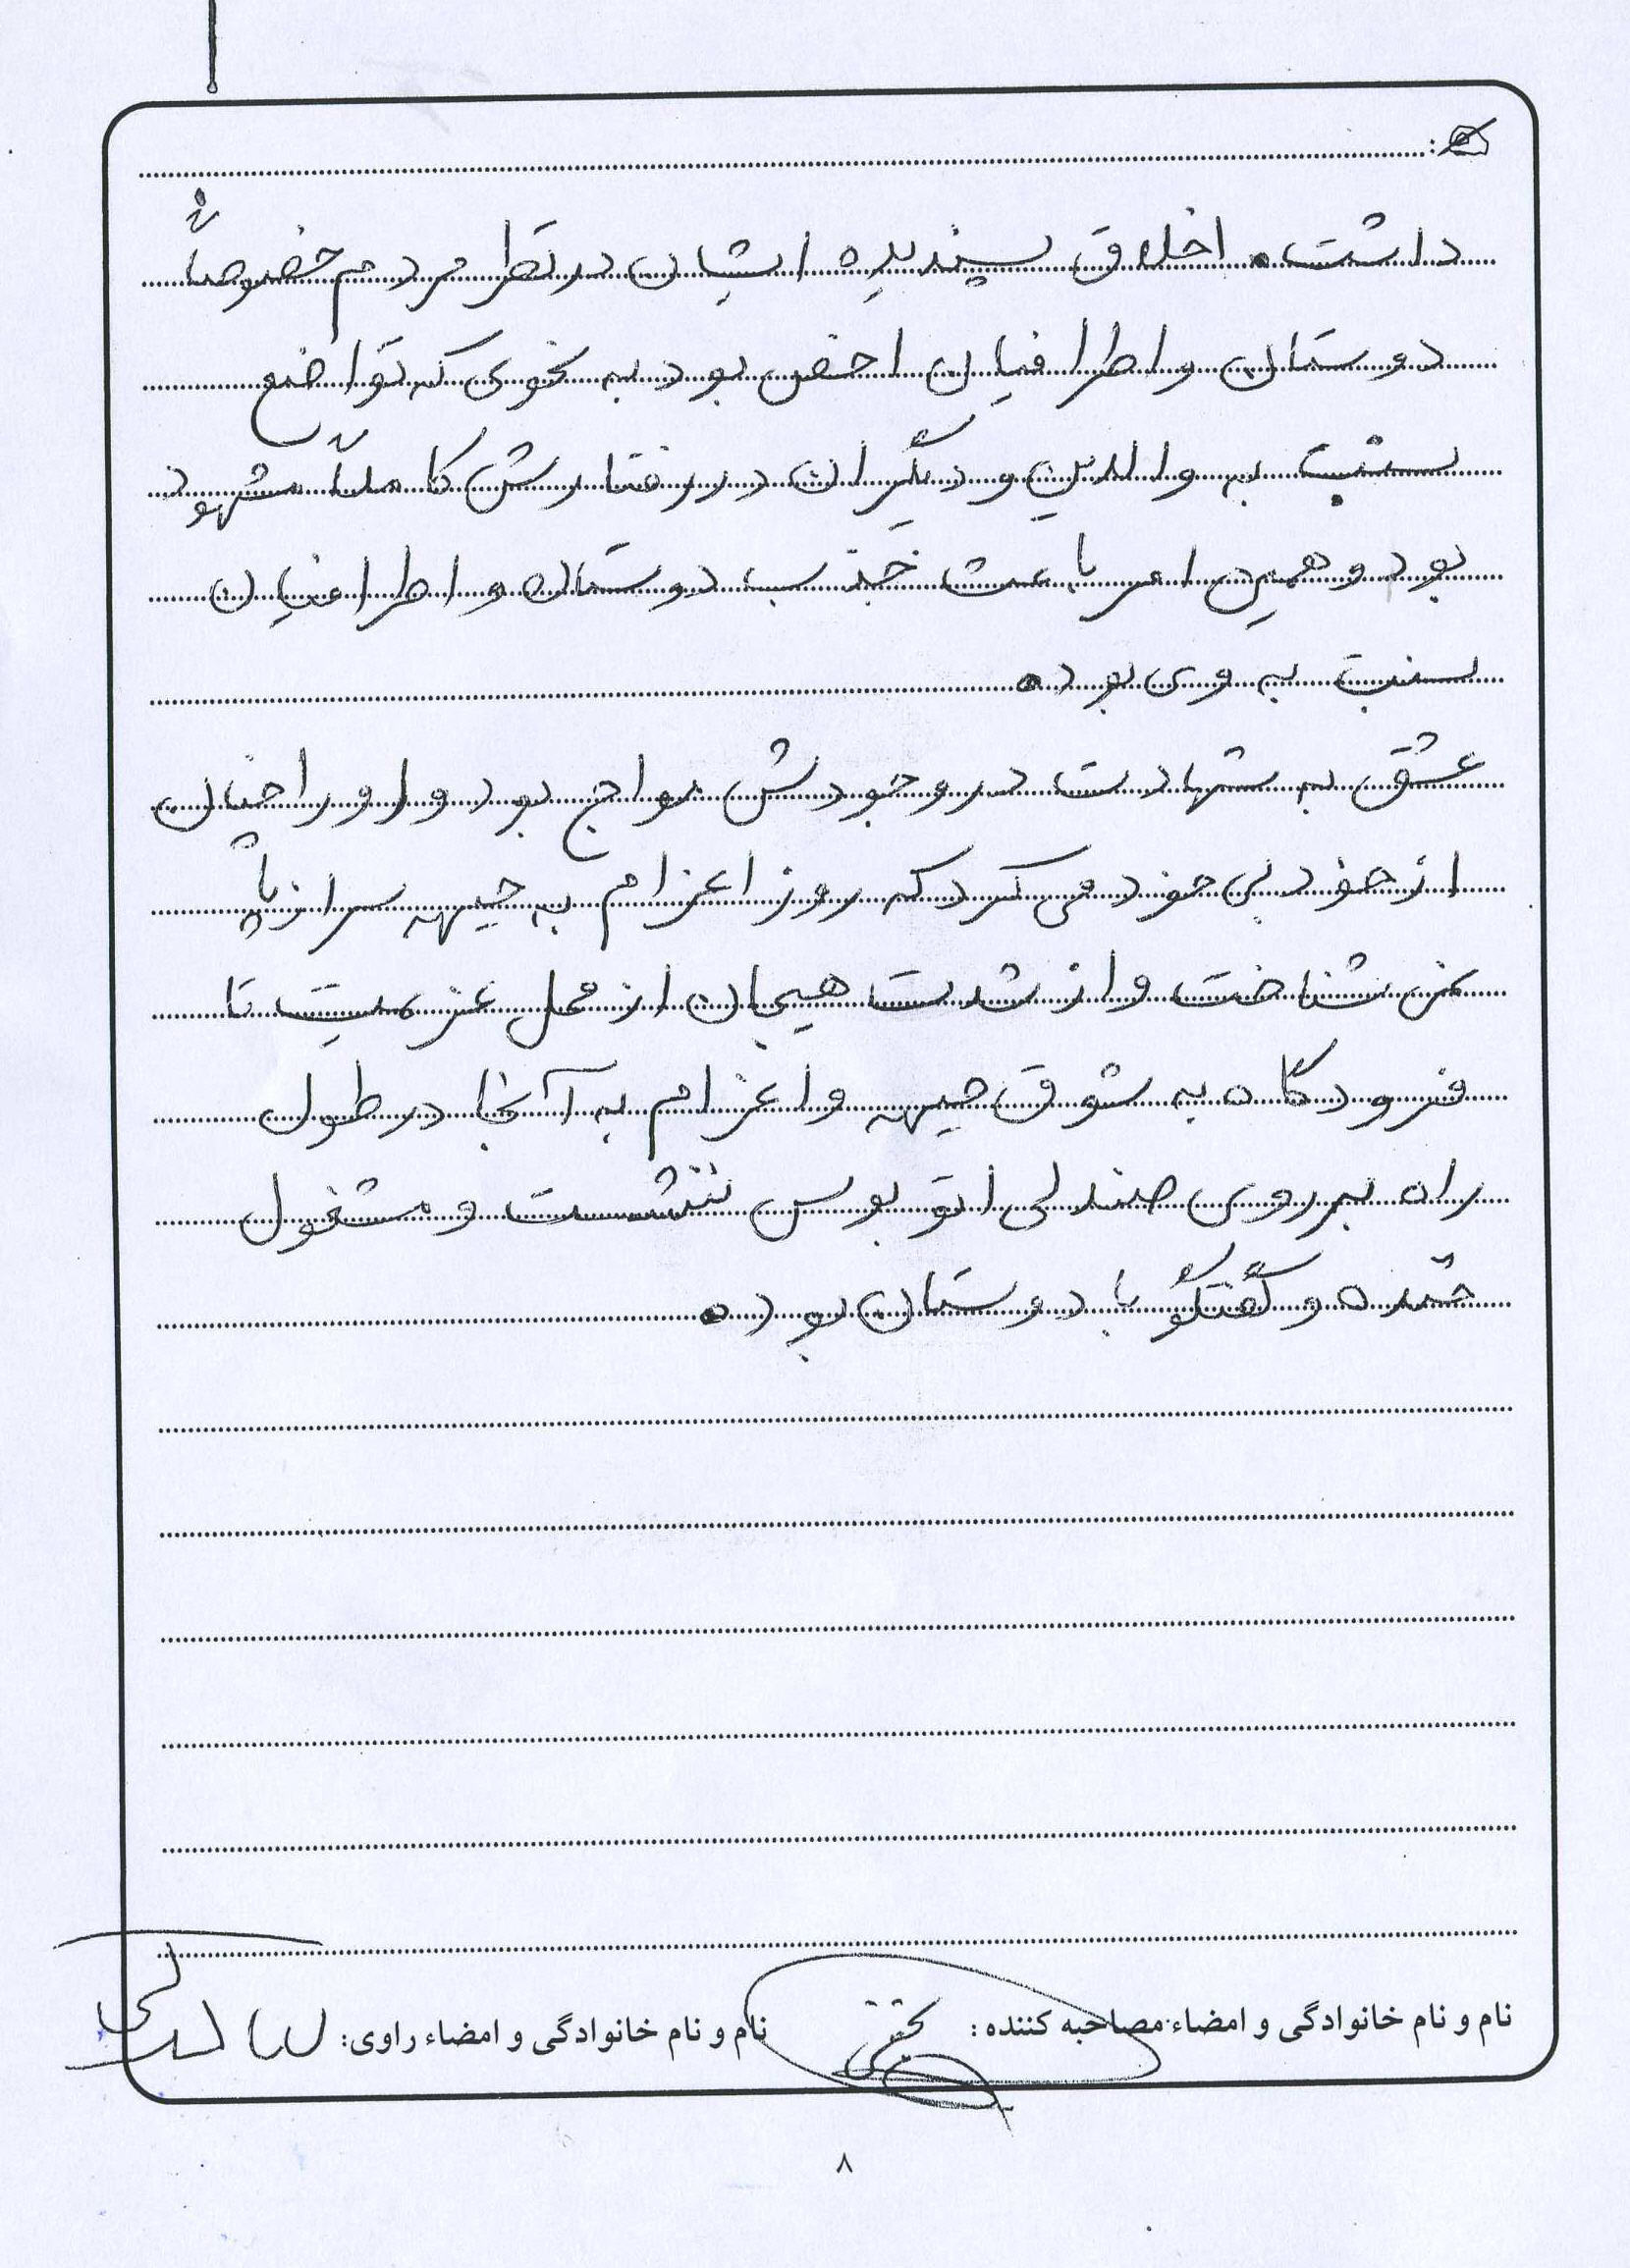 داشت. اخلاق پسندیده ایشان در نظر مردم خصوصاً
دوستان و اطرافیان اخص بود به نحوی که تواضع
نسبت به والدین و دیگران در رفتارش کاملاً مشهود
بود و همین امر باعث جذب دوستان و اطرافیان
نسبت به وی بود.
عشق به شهادت در وجودش مواج بود و او را چنان
از خود بی خود می کرد که روز اعزام به جبهه سر از پا
نمی شناخت و از شدت هیجان از محل عزیمت تا
فرودگاه به شوق جبهه و اعزام به آنجا در طول
راه بر روی صندلی اتوبوس ننشست و مشغول
خنده و گفتگو با دوستان بود.
نام و نام خانوادگی و امضاء مصاحبه کننده :
نام و نام خانوادگی و امضاء راوی:
۸